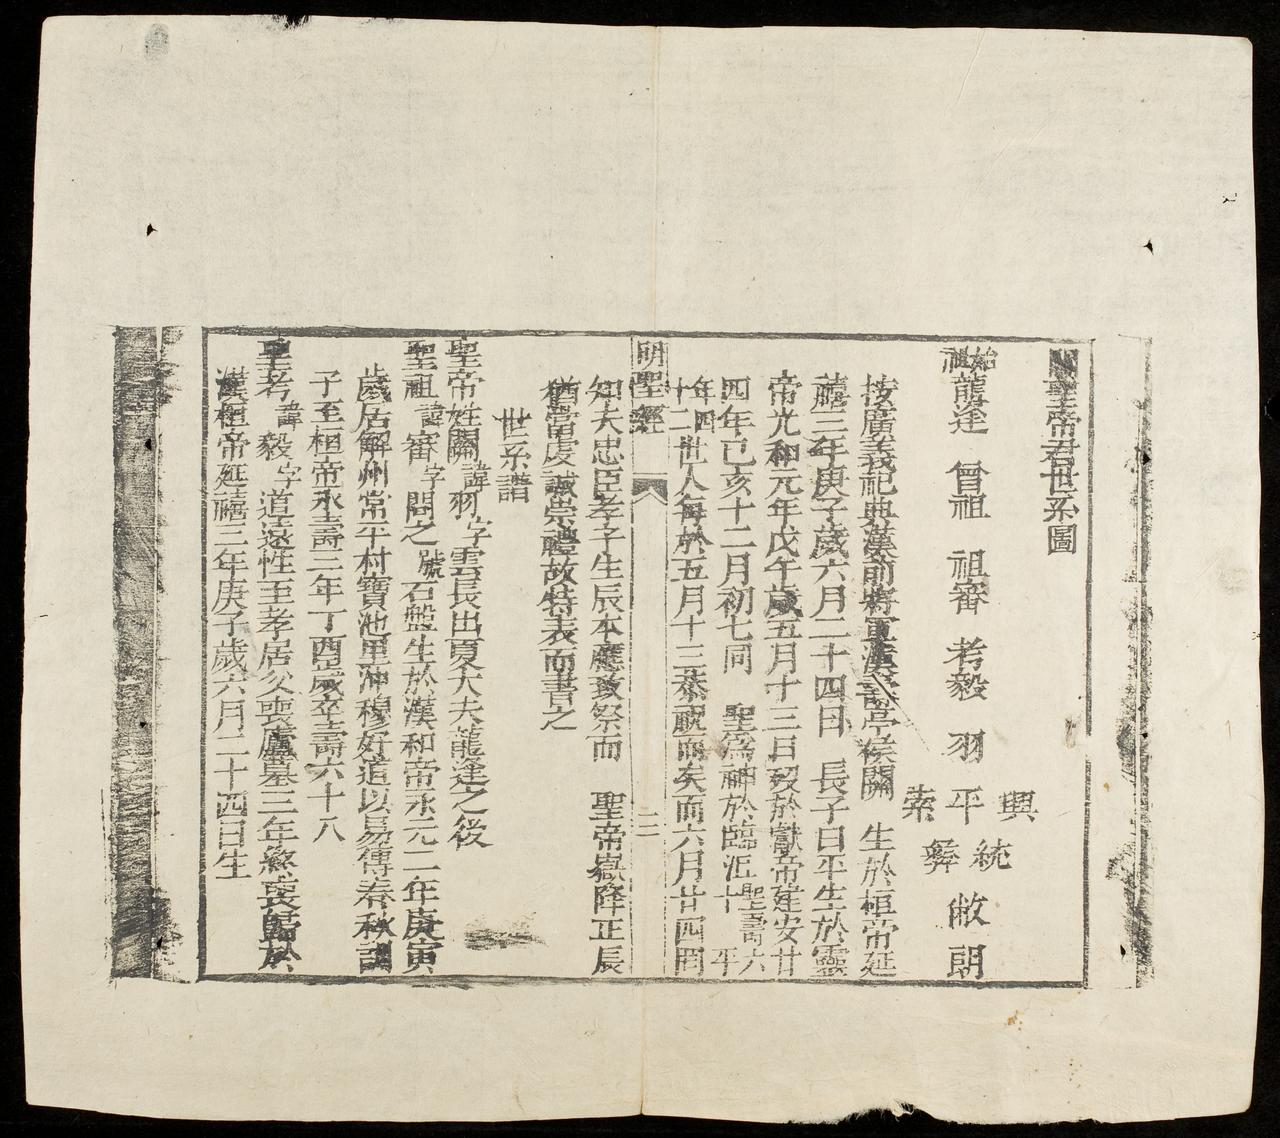 聖帝君世系圖
始祖龍逄 曾祖 祖審 考毅 羽 平 興 索 統 彝 敝 朗
按廣義祀典漢前將軍漢壽亭侯關 生於桓帝延
禧三年庚子歲六月二十四日 長子曰平生於靈
帝光和元年戊午歲五月十三日歿於獻帝建安廿
四年己亥十二月初七同 聖為神於臨沮 聖壽六十 平
年四十二世人每於五月十三恭祝而矣而六月廿四罔
知夫忠臣孝子生辰本應致祭而 聖帝嶽降正辰
猶當虔誠崇禮故特表而書之
明聖經 三
世系譜
聖帝姓關諱羽字雲長出夏大夫龍逄之後
聖祖諱審字問之號石盤生於漢和帝永元二年庚寅
歲居解州常平村寶池里沖穆好道以易傳春秋訓
子至桓帝永壽三年丁酉歲卒壽六十八
聖考諱毅字道遠性至孝居父喪廬墓三年終喪歸於
漢桓帝延禧三年庚子歲六月二十四日生